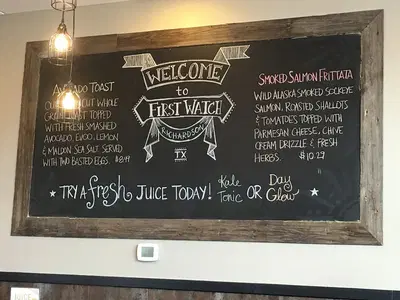 WELCOME
to
FIRST WATCH
RICHARDSON
TX
AVOCADO TOAST
WHOLE
TOAST TOPPED
WITH FRESH SMASHED
AVOCADO, EVOO, LEMON
& MALDON SEA SALT. SERVED
WITH TWO BASTED EGGS.
SMOKED SALMON FRITTATA
WILD ALASKA SMOKED SOCKEYE
SALMON, ROASTED SHALLOTS
& TOMATOES TOPPED WITH
PARMESAN CHEESE, CHIVE
CREAM DRIZZLE & FRESH
HERBS. $10.29
TRY A fresh JUICE TODAY! Kale Tonic OR Day Glow